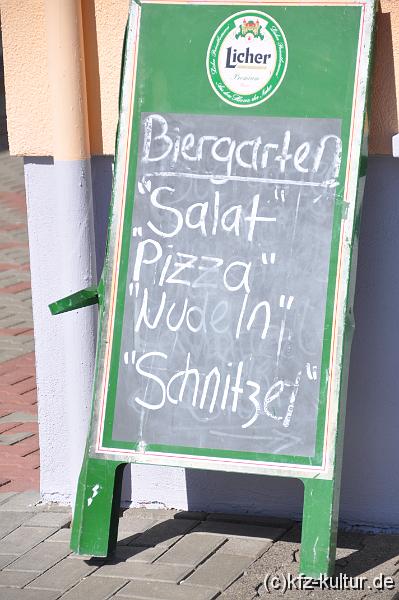 Licher
Premium
Biergarten
"Salat"
"Pizza"
"Nudeln"
"Schnitzel"
(c)kfz-kultur.de